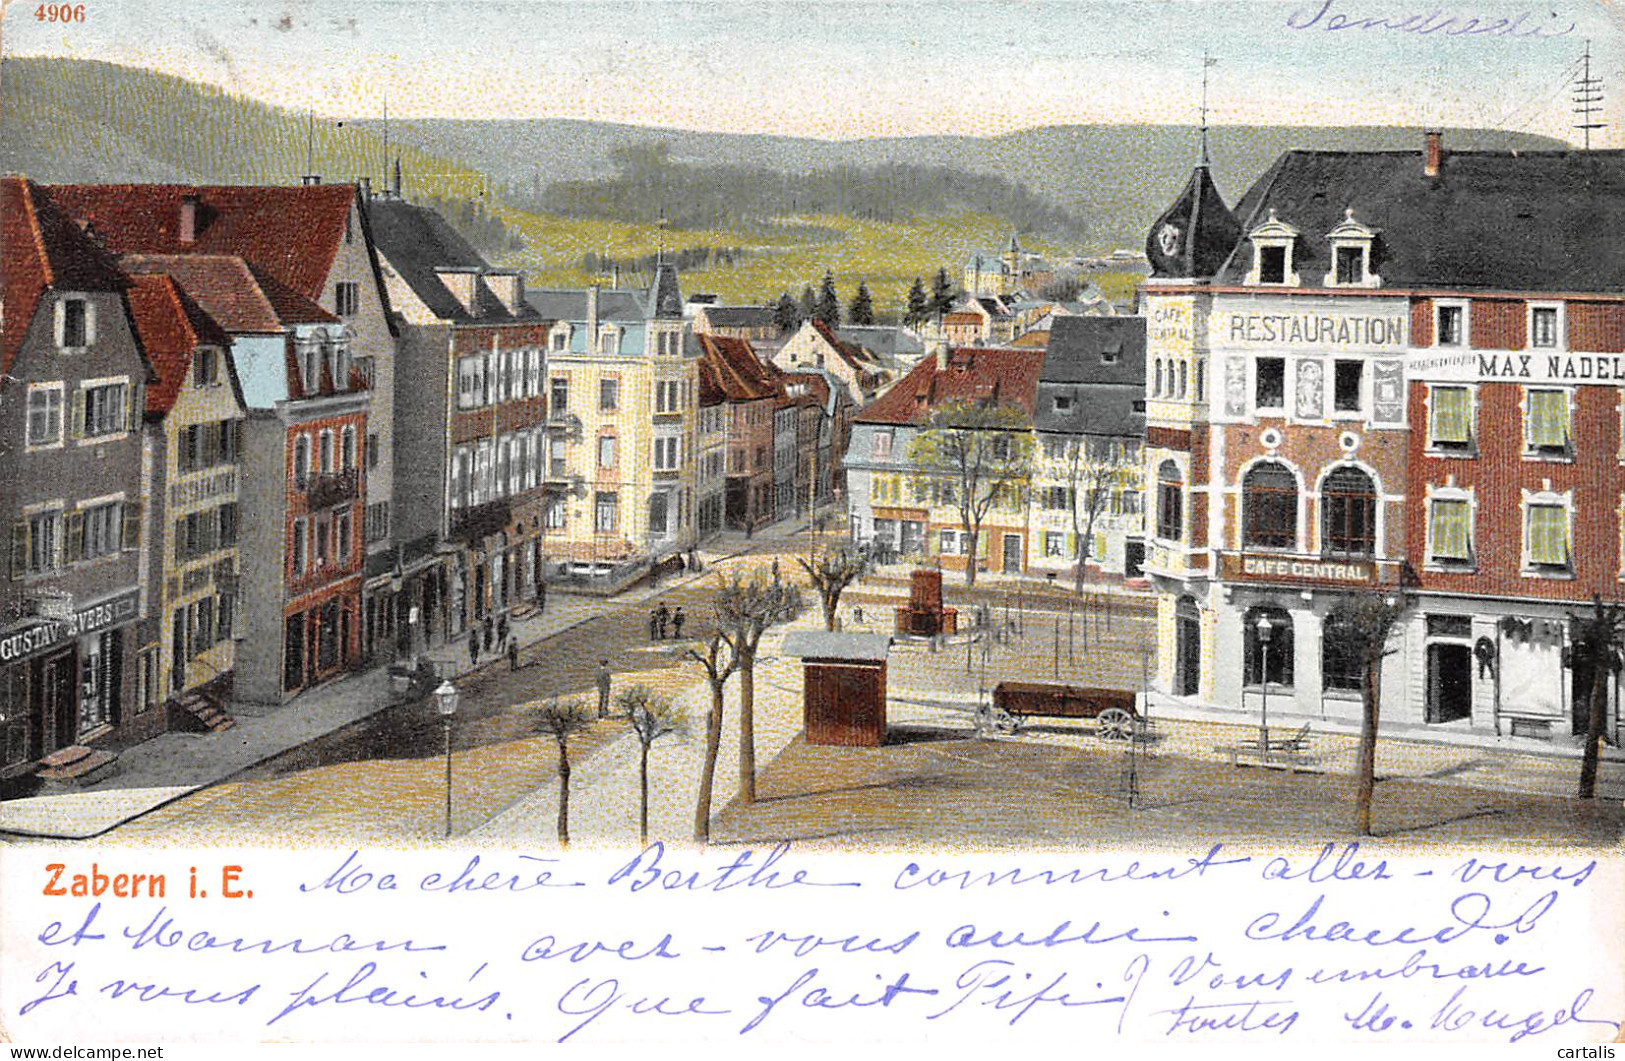 4906
Vendredi
CAFE
CENTRAL
RESTAURATION
MAX NADEL
CAFE CENTRAL
GUSTAV EVERS
Zabern i. E.
Ma chère Berthe comment allez-vous
et Maman, avez-vous aussi chaud?
Je vous plains. Que fait Fifi? Vous embrasse
toutes M. Mugel
cartalis